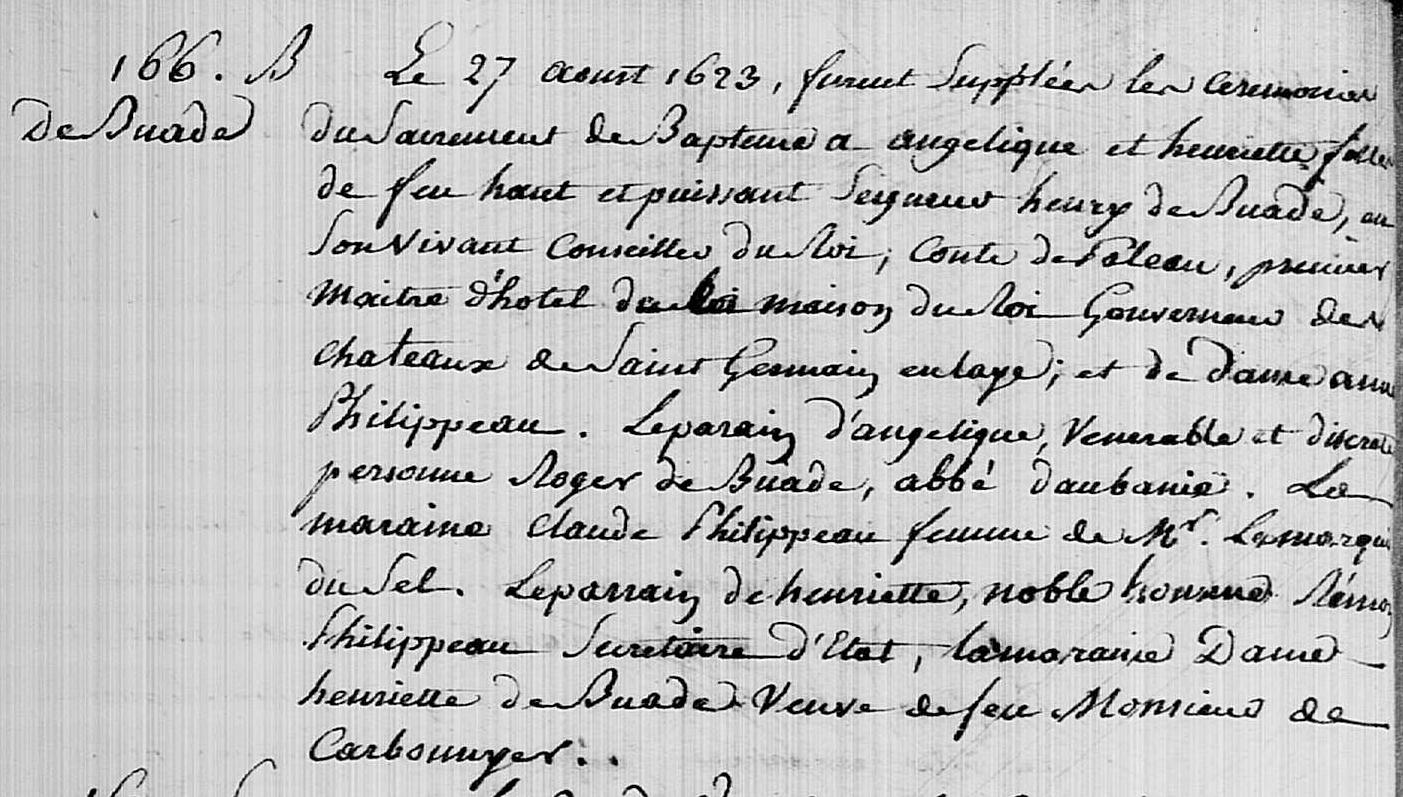 166. B Le 27 aoust 1623, furent Suppléés les ceremonies
De Buade du Sacrement de Bapteme a angelique et henriette filles
de feu haut et puissant Seigneur henry de Buade, en
Son vivant Conseiller du Roi, Conte de Paleau, premier
maitre d'hotel de la maison du Roi Gouverneur des
chateaux de Saint Germain en laye; et de dame anne
Philippeau. Le parain d'angelique, Venerable et discrete
personne Roger de Buade, abbé d'aubanie. La
maraine Claude Philippeau femme de Mr. Le marquis
du Sel. Le parrain de henriette, noble homme Rémon
Philippeau Secretaire d'Etat, la maraine Dame
henriette de Buade Veuve de feu Monsieur de
Carbonnyer.